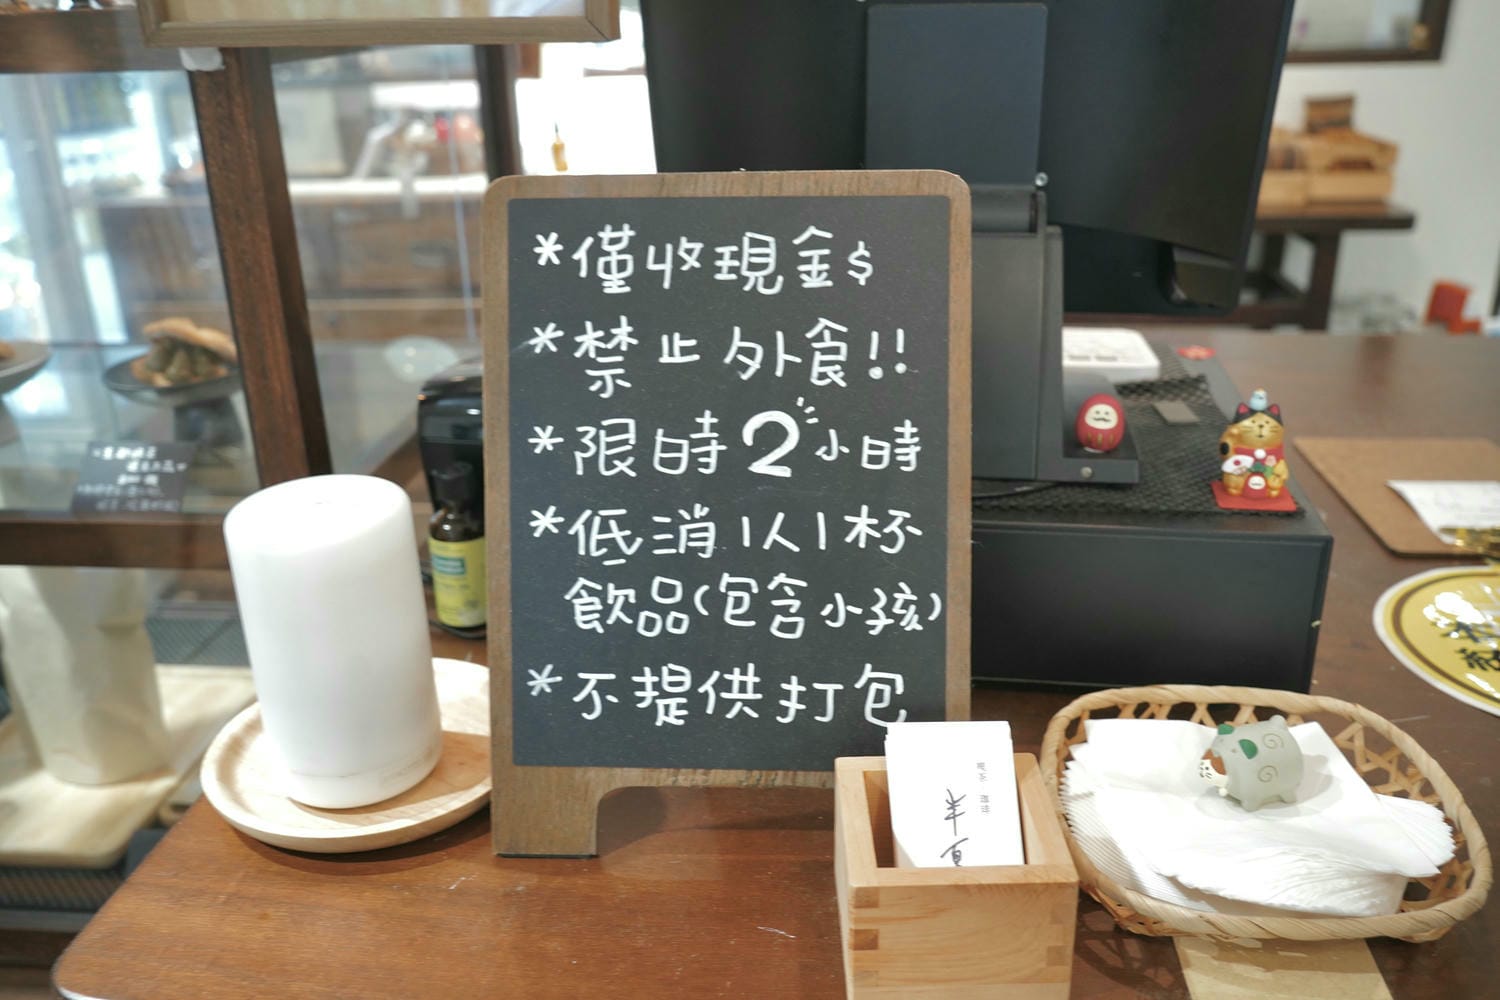 *僅收現金$
*禁止外食!!
*限時2小時
*低消1人1杯
飲品(包含小孩)
*不提供打包
喫茶 珈琲
半夏